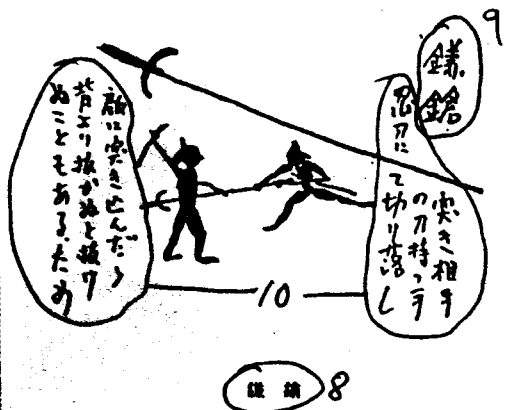 9
鎌鎗
突き相手
の刀持つ手
忍刀に
て切り落し
敵に突き込んだら
背より抜かぬと抜け
ぬこともあるため
10
8